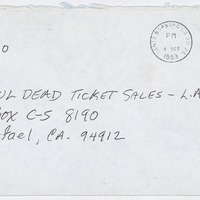 O
UL DEAD TICKET SALES - L.A
OX C-S 8190
fael, CA. 94912
PM
OCT
1993